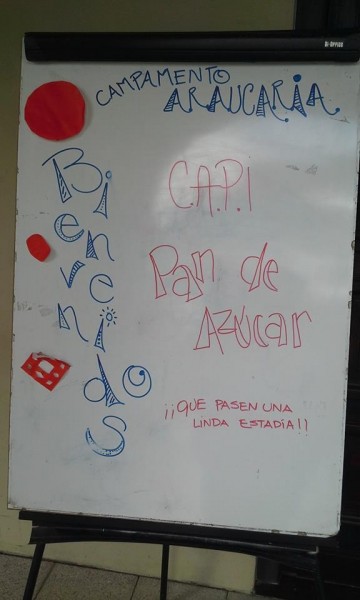 Bi-OFFICE
CAMPAMENTO
ARAUCARIA
Bienvenidos
C.A.P.i
Pan de
AZÚcar
¡¡QUE PASEN UNA
LINDA ESTADiA!!